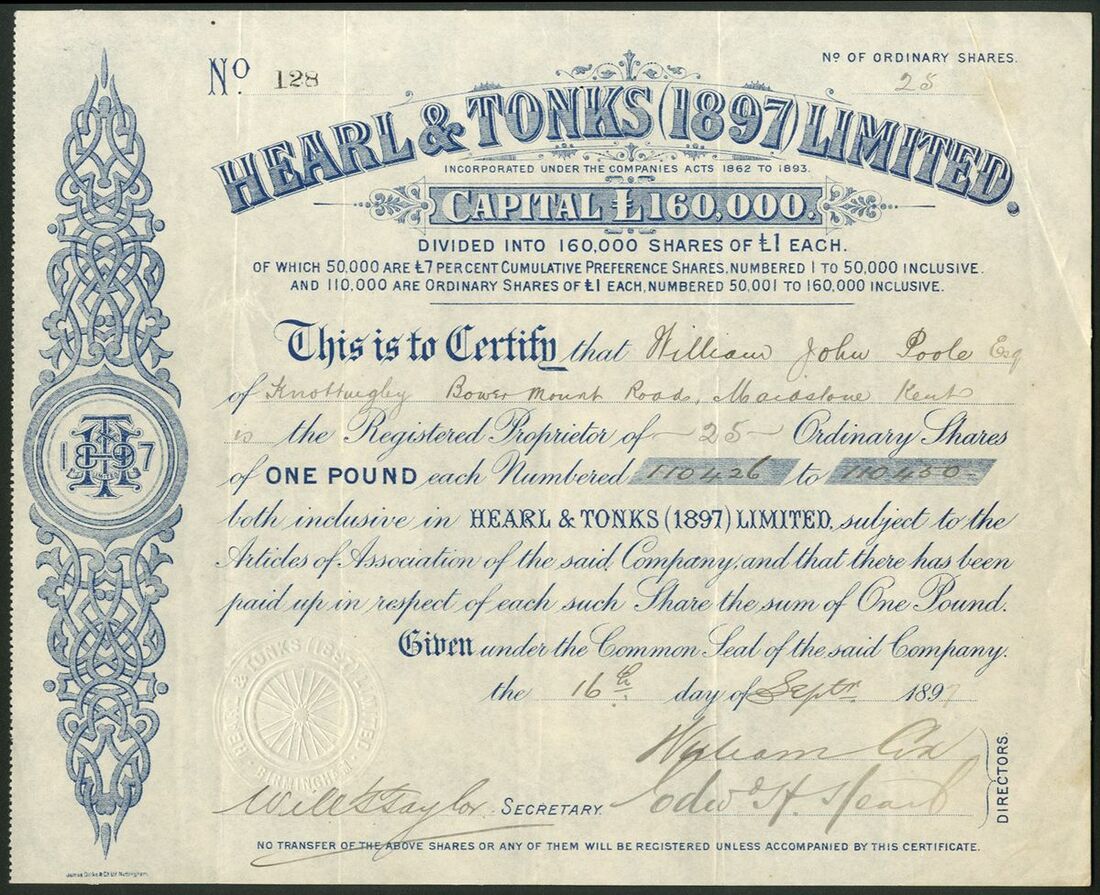 No 128
No OF ORDINARY SHARES.
25
HEARL & TONKS (1897) LIMITED.
INCORPORATED UNDER THE COMPANIES ACTS 1862 TO 1893.
CAPITAL £160,000.
DIVIDED INTO 160,000 SHARES OF £1 EACH.
OF WHICH 50,000 ARE £7 PER CENT CUMULATIVE PREFERENCE SHARES, NUMBERED 1 TO 50,000 INCLUSIVE.
AND 110,000 ARE ORDINARY SHARES OF £1 EACH, NUMBERED 50,001 TO 160,000 INCLUSIVE.
This is to Certify that William John Poole Esq
of Knottingley Bower Mount Road, Maidstone Kent
is the Registered Proprietor of 25 Ordinary Shares
of ONE POUND each Numbered 110426 to 110450
both inclusive in HEARL & TONKS (1897) LIMITED, subject to the
Articles of Association of the said Company, and that there has been
paid up in respect of each such Share the sum of One Pound.
Given under the Common Seal of the said Company.
the 16th day of Septr 1897
HEARL & TONKS (1897) LIMITED
BIRMINGHAM
William Cox
Edwd H. Hearl
DIRECTORS.
Will S Taylor SECRETARY.
NO TRANSFER OF THE ABOVE SHARES OR ANY OF THEM WILL BE REGISTERED UNLESS ACCOMPANIED BY THIS CERTIFICATE.
1897